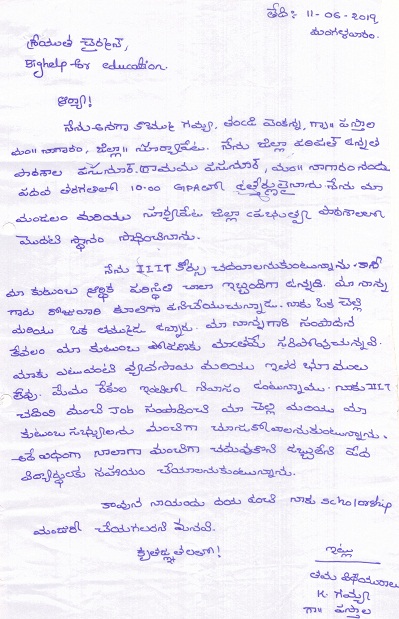 తేది: 11-06-2019
మంగళవారం.
శ్రీయుత చైర్మన్,
Bighelp for education.
ఆర్యా!
నేను అనగా గమ్య, తండ్రి వెంకన్న, గ్రా॥ పస్తాల
మం॥ నాగారం, జిల్లా॥ సూర్యాపేట. నేను జిల్లా పరిషత్ ఉన్నత
పాఠశాల పసునూర్, గ్రామము పసునూర్, మం॥ నాగారం నందు
పదవ తరగతిలో 10.00 GPAలో ఉత్తీర్ణురాలైనాను నేను మా
మండలం మరియు సూర్యాపేట జిల్లా ప్రభుత్వ పాఠశాలలో
మొదటి స్థానం సాధించినాను.
నేను IIIT కోర్సు చదవాలనుకుంటున్నాను. కానీ
మా కుటుంబ ఆర్థిక పరిస్థితి చాలా ఇబ్బందిగా ఉన్నది. మా నాన్న
గారు రోజువారి కూలీగా పనిచేయుచున్నాడు. నాకు ఒక చెల్లి
మరియు ఒక తమ్ముడు ఉన్నారు. మా నాన్నగారి సంపాదన
కేవలం మా కుటుంబ పోషణకు మాత్రమే సరిపోవుచున్నవి.
మాకు ఎటువంటి వ్యవసాయ మరియు ఇతర భూములు
లేవు. మేము రేకుల ఇంటిలో నివాసం ఉంటున్నాము. నాకు IIIT
చదివి మంచి Job సంపాదించి మా చెల్లి మరియు మా
కుటుంబ సభ్యులను మంచిగా చూసుకోవాలనుకుంటున్నాను.
అదే విధంగా నాలాగా మంచిగా చదువుకొనే డబ్బులేని పేద
విద్యార్థులకు సహాయం చేయాలనుకుంటున్నాను.
కావున నాయందు దయ ఉంచి నాకు scholarship
మంజూరు చేయగలరని మనవి.
కృతజ్ఞతలతో!
ఇట్లు
తమ విధేయురాలు
K. గమ్య
గ్రా॥ పస్తాల